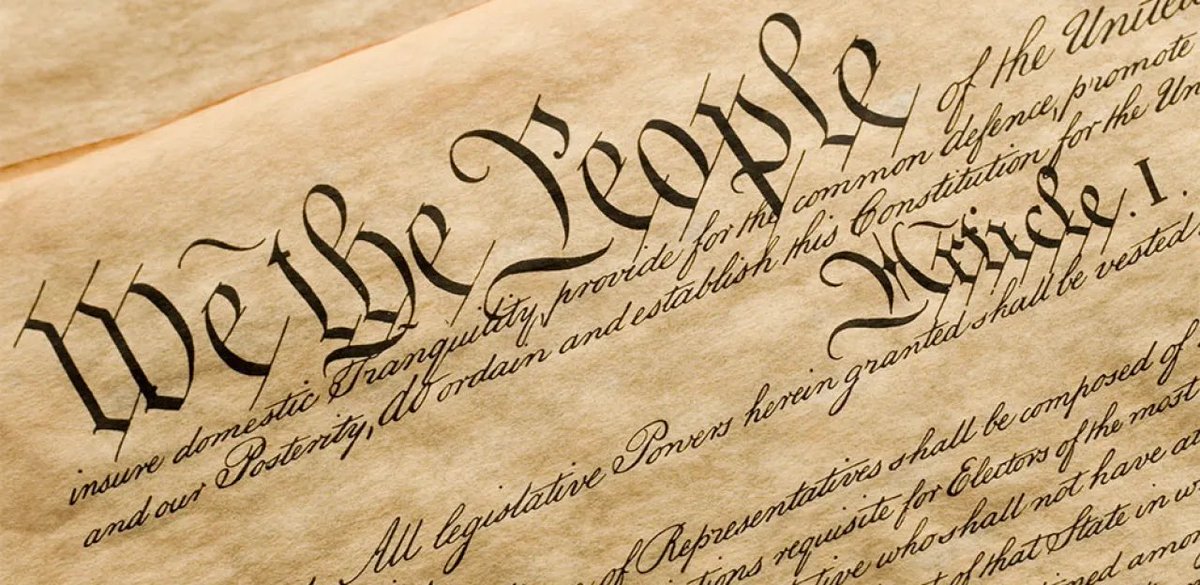 We the People of the United
insure domestic Tranquility, provide for the common defence, promote
and our Posterity, do ordain and establish this Constitution for the Un
Article. I.
All legislative Powers herein granted shall be vested
of Representatives shall be composed of
tions requisite for Electors of the most
tive who shall not have at
of that State in w
ned amo